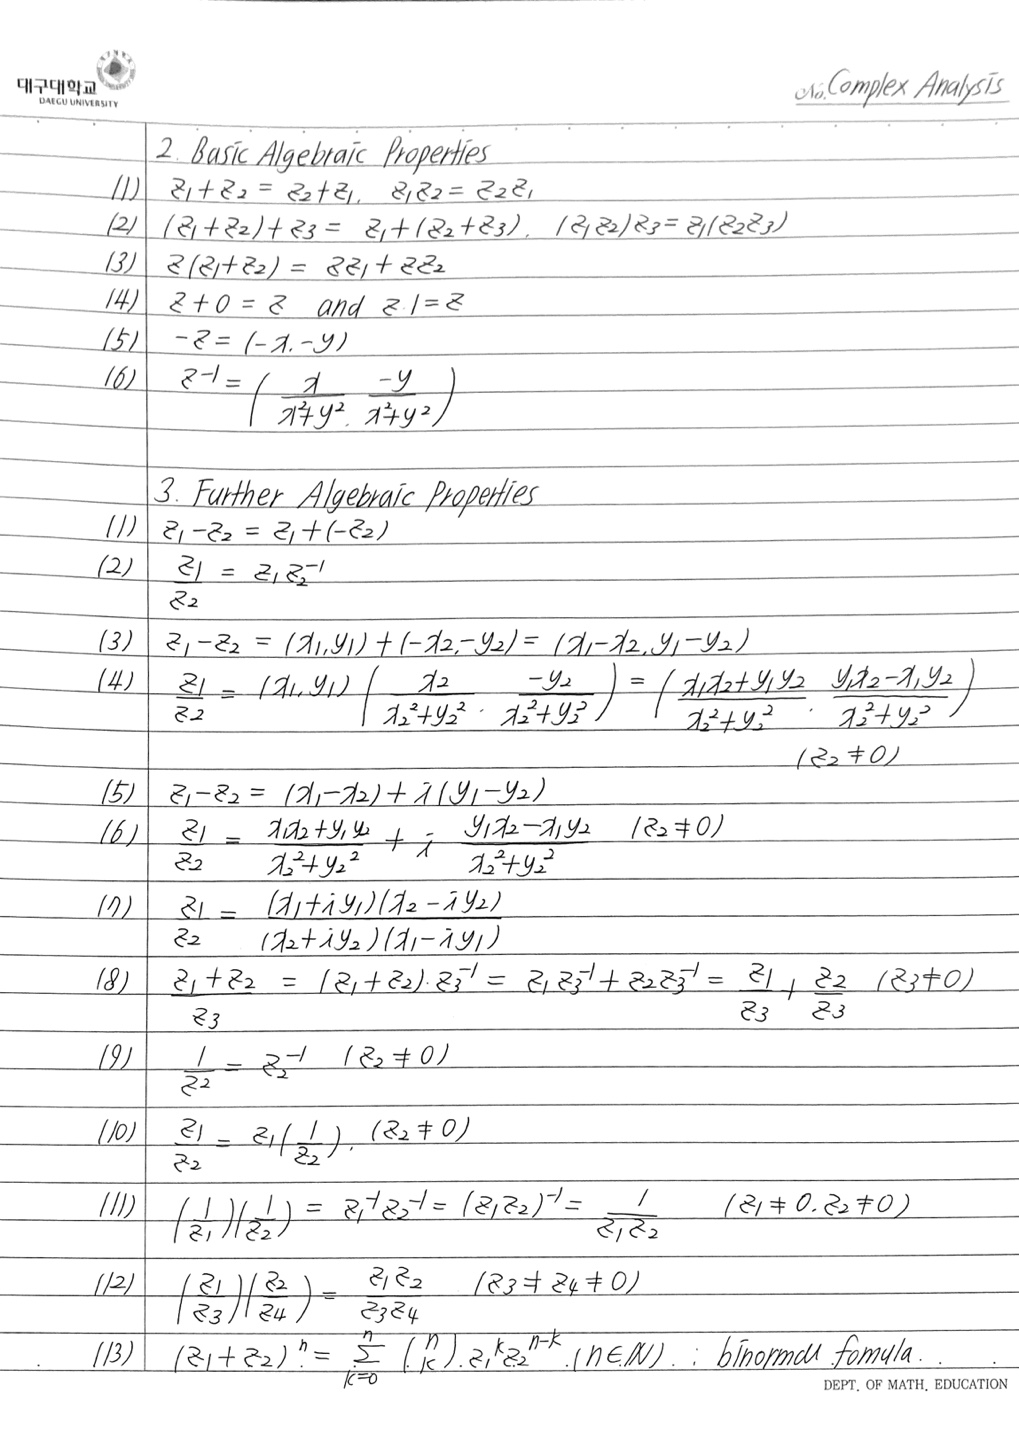 대구대학교
DAEGU UNIVERSITY
No. Complex Analysis
2. Basic Algebraic Properties
(1) z₁+z₂ = z₂+z₁, z₁z₂ = z₂z₁
(2) (z₁+z₂)+z₃ = z₁+(z₂+z₃), (z₁z₂)z₃ = z₁(z₂z₃)
(3) z(z₁+z₂) = zz₁+zz₂
(4) z+0 = z and z·1 = z
(5) -z = (-x, -y)
(6) z⁻¹ = (x/(x²+y²), -y/(x²+y²))
3. Further Algebraic Properties
(1) z₁-z₂ = z₁+(-z₂)
(2) z₁/z₂ = z₁z₂⁻¹
(3) z₁-z₂ = (x₁,y₁)+(-x₂,-y₂) = (x₁-x₂, y₁-y₂)
(4) z₁/z₂ = (x₁,y₁)(x₂/(x₂²+y₂²), -y₂/(x₂²+y₂²)) = ((x₁x₂+y₁y₂)/(x₂²+y₂²), (y₁x₂-x₁y₂)/(x₂²+y₂²))
(z₂≠0)
(5) z₁-z₂ = (x₁-x₂)+i(y₁-y₂)
(6) z₁/z₂ = (x₁x₂+y₁y₂)/(x₂²+y₂²) + i (y₁x₂-x₁y₂)/(x₂²+y₂²) (z₂≠0)
(7) z₁/z₂ = (x₁+iy₁)(x₂-iy₂)/(x₂+iy₂)(x₁-iy₁)
(8) (z₁+z₂)/z₃ = (z₁+z₂)·z₃⁻¹ = z₁z₃⁻¹+z₂z₃⁻¹ = z₁/z₃ + z₂/z₃ (z₃≠0)
(9) 1/z₂ = z₂⁻¹ (z₂≠0)
(10) z₁/z₂ = z₁(1/z₂). (z₂≠0)
(11) (1/z₁)(1/z₂) = z₁⁻¹z₂⁻¹ = (z₁z₂)⁻¹ = 1/(z₁z₂) (z₁≠0, z₂≠0)
(12) (z₁/z₃)(z₂/z₄) = z₁z₂/(z₃z₄) (z₃≠z₄≠0)
(13) (z₁+z₂)ⁿ = Σ_{k=0}^{n} (n k) z₁ᵏz₂ⁿ⁻ᵏ. (n∈ℕ). : binormal fomula.
DEPT. OF MATH. EDUCATION